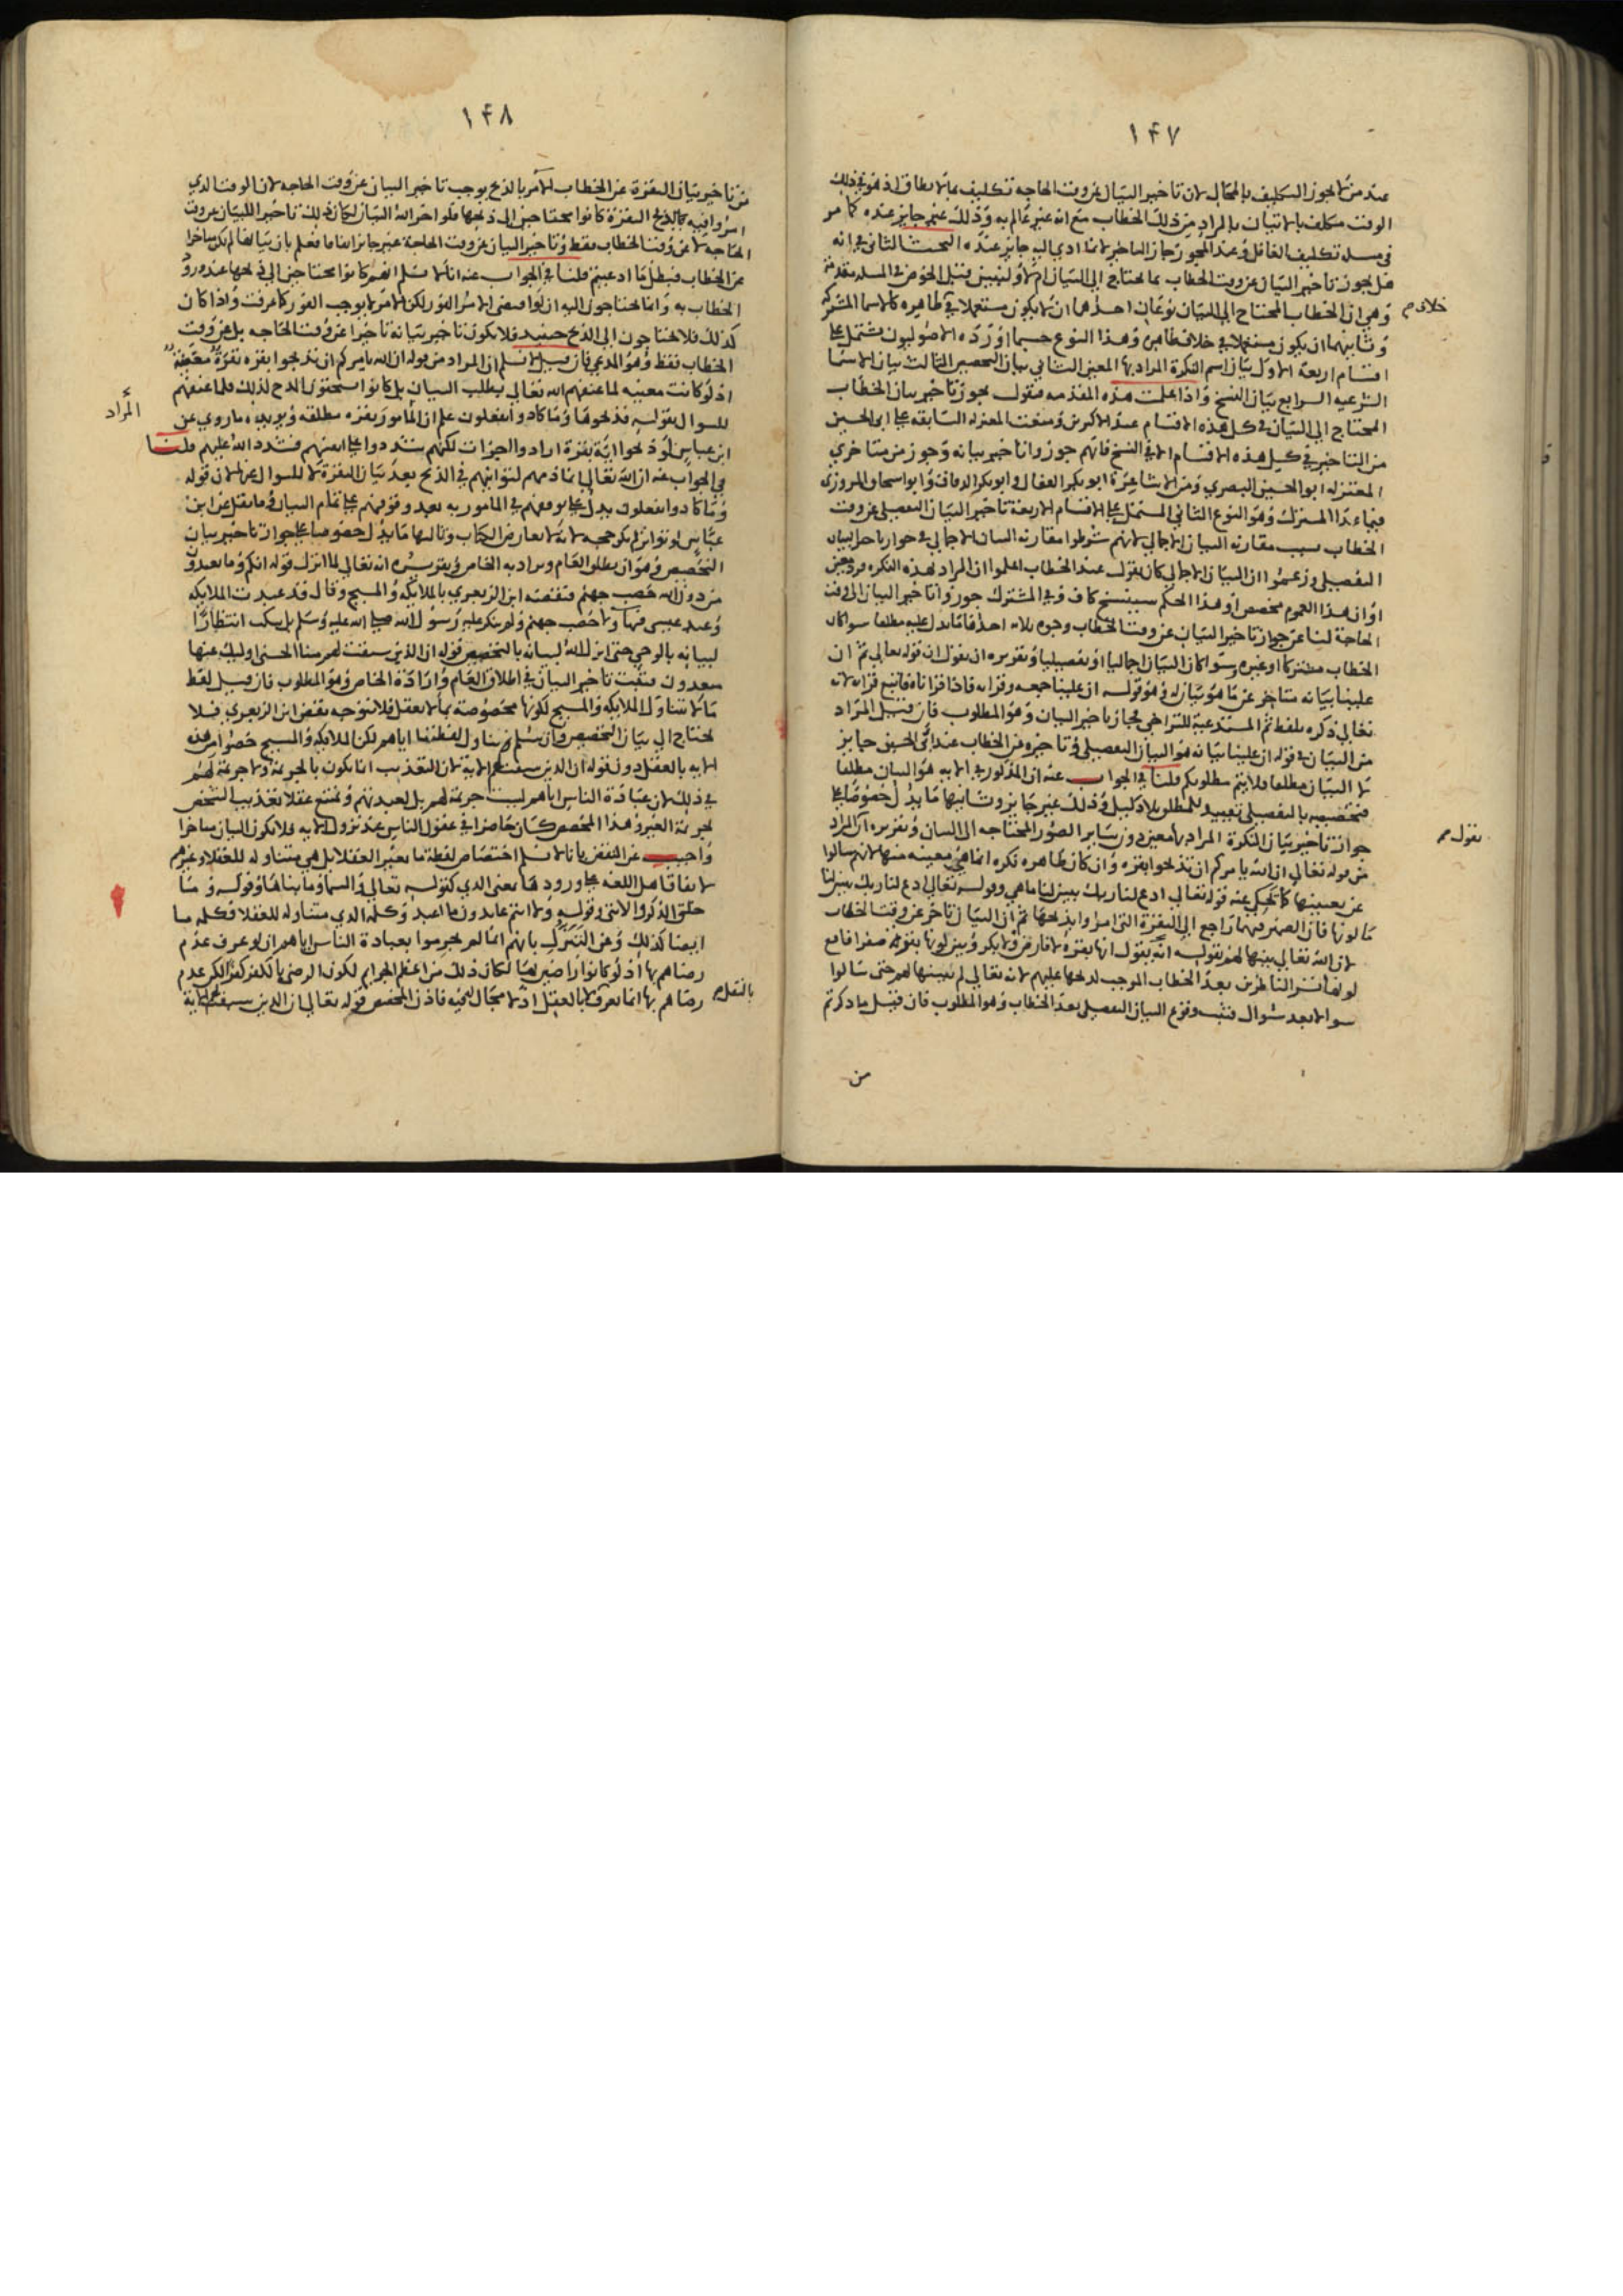 ١٤٧
عند من لا يجوز التكليف بالمحال لان تاخير البيان عن وقت الحاجه تكليف بما لا يطاق اذ هو في ذلك
الوقت مكلف بالاتيان بالمراد من ذلك الخطاب مع انه غير عالم به وذلك غير جايز عنده كما مر
في مسله تكليف الغافل وعند المجوز جاز التاخير لانما ادي اليه جايز عنده البحث الثاني في انه
هل يجوز تاخير البيان عن وقت الخطاب بما يحتاج الي البيان ام لا ولنبين قبل الخوض في المسله مقدمة
وهي ان الخطاب المحتاج الي البيان نوعان احدهما ان لا يكون مستعملا في ظاهره كالاسما المشتركه
خلاف
وثانيهما ان يكون مستعملا في خلاف ظاهره وهذا النوع حسبما اورده الاصوليون مشتمل علي
اقسام اربعة الاول بيان اسم النكرة المراد بها المعين الثاني بيان التخصيص الثالث بيان الاسما
الشرعيه الرابع بيان النسخ واذا علمت هذه المقدمه فنقول يجوز تاخير بيان الخطاب
المحتاج الي البيان في كل هذه الاقسام عند الاكثرين ومنعت المعتزله السابقه علي ابي الحسين
من التاخير في كل هذه الاقسام الا في النسخ فانهم جوزوا تاخير بيانه وجوز من متاخري
المعتزله ابو الحسين البصري ومن الاشاعرة ابو بكر القفال وابو بكر الدقاق وابو اسحاق المروزي
فيما عدا المشترك وهو النوع الثاني المشتمل علي الاقسام الاربعة تاخير البيان التفصيلي عن وقت
الخطاب بسبب مقارنه البيان الاجمالي لانهم شرطوا مقارنه البيان الاجمالي في جواز تاخير البيان
التفصيلي وزعموا ان البيان الاجمالي كان يقول عند الخطاب اعلموا ان المراد بهذه النكره فرد معين
او ان هذا العموم مخصص او هذا الحكم سينسخ كاف وفي المشترك جوزوا تاخير البيان الي وقت
الحاجة لنا علي جواز تاخير البيان عن وقت الخطاب وجوه ثلاثه احدها ما يدل عليه مطلقا سوا كان
الخطاب مشتركا او غيره وسوا كان البيان اجماليا او تفصيليا وتقريره ان نقول ان قوله تعالي ثم ان
علينا بيانه متاخر عن ما هو بيان له وهو قوله ان علينا جمعه وقرانه فاذا قراناه فاتبع قرانه لانه
تعالي ذكره بلفظ ثم المستدعية للتراخي فجاز تاخير البيان وهو المطلوب فان قيل المراد
من البيان في قوله ان علينا بيانه هو البيان التفصيلي وتاخيره عن الخطاب عند ابي الحسين جايز
لا البيان مطلقا فلا يتم مطلوبكم قلنا في الجواب عنه ان المذكور في الايه هو البيان مطلقا
فتخصيصه بالتفصيلي تقييد للمطلق بلا دليل وذلك غير جايز وثانيها ما يدل خصوصا علي
جواز تاخير بيان النكرة المراد بها معين دون ساير الصور المحتاجه الي البيان وتقريره ان المراد
نقول
من قوله تعالي ان الله يامركم ان تذبحوا بقره وان كان ظاهره نكره انما هي معينه منها لانهم سالوا
عن تعيينها كما يحكي عنه قوله تعالي ادع لنا ربك يبين لنا ما هي وقوله تعالي ادع لنا ربك يبين لنا
ما لونها فان الضمير فيهما راجع الي البقرة التي امروا بذبحها ثم ان البيان تاخر عن وقت الخطاب
لان الله تعالي بينها لهم بقوله انه يقول انها بقرة لا فارض ولا بكر وبين لونها بقوله صفرا فاقع
لونها تسر الناظرين بعد الخطاب الموجب لذبحها عليهم لانه تعالي لم يبينها لهم حتى سالوا
سوالا بعد سوال فثبت وقوع البيان التفصيلي بعد الخطاب وهو المطلوب فان قيل ما ذكرتم
من
١٤٨
من تاخير بيان البقرة عن الخطاب الامر بالذبح يوجب تاخير البيان عن وقت الحاجه لان الوقت الذي
امروا فيه بذبح البقرة كانوا محتاجين الي ذبحها فلو اخر الله البيان لكان ذلك تاخيرا للبيان عن وقت
الحاجه لا عن وقت الخطاب فقط وتاخير البيان عن وقت الحاجة غير جايز اتفاقا فعلم بان بيانها لم يكن متاخرا
عن الخطاب فبطل ما ادعيتم قلنا في الجواب عنه انا لا نسلم انهم كانوا محتاجين الي ذبحها عند ورود
الخطاب به وانما يحتاجون اليه ان لو اقتضي الامر الفور لكن الامر لا يوجب الفور كما عرفت واذا كان
كذلك فلا يحتاجون الي الذبح حينيد فلا يكون تاخير بيانه تاخيرا عن وقت الحاجه بل عن وقت
الخطاب فقط وهو المدعي فان قيل لا نسلم ان المراد من قوله ان الله يامركم ان تذبحوا بقره بقرة معينة
اذ لو كانت معينه لما عنفهم الله تعالي بطلب البيان بل كانوا استحقوا المدح لذلك فلما عنفهم
المراد
للسوال بقوله فذبحوها وما كادوا يفعلون علم ان المامور بقره مطلقه ويويده ما روي عن
ابن عباس لو ذبحوا اية بقرة ارادوا لاجزات لكنهم شددوا علي انفسهم فشدد الله عليهم قلنا
في الجواب عنه ان الله تعالي انما ذمهم لتوانيهم في الذبح بعد بيان البقرة لا للسوال عنها لان قوله
وما كادوا يفعلون يدل علي توقفهم في المامور به بعد وقوفهم علي تمام البيان وما نقل عن ابن
عباس لو تواتر لم يكن حجه لانه لا يعارض الكتاب وثالثها ما يدل خصوصا علي جواز تاخير بيان
التخصيص وهو ان يطلق العام ويراد به الخاص وتقريره انه تعالي لما انزل قوله انكم وما تعبدون
من دون الله حصب جهنم فنقضه ابن الزبعري بالملايكة والمسيح وقال قد عبدت الملايكه
وعبد عيسى حصب جهنم ولم ينكر عليه رسول الله صلى الله عليه وسلم بل سكت انتظارا
لبيانه بالوحي حتى انزل الله لبيانه بالتخصيص قوله ان الذين سبقت لهم منا الحسنى اوليك عنها
مبعدون فثبت تاخير البيان في اطلاق العام وارادة الخاص وهو المطلوب فان قيل لفظ
ما لا يتناول الملايكه والمسيح لكونها مخصوصة بما لا يعقل فلا يتوجه نقض ابن الزبعري فلا
يحتاج الي بيان التخصيص وان سلم تناول لفظها اياهم لكن الملايكه والمسيح خصوا من هذه
الايه بالعقل دون قوله ان الذين سبقت لهم الاية لان التعذيب انما يكون بالجريمة ولا جريمة لهم
في ذلك لان عبادة الناس اياهم ليست جريمة لهم بل لعبدتهم ويمتنع عقلا تعذيب الشخص
لجريمة الغير وهذا المخصص كان حاضرا في عقول الناس عند نزول الايه فلا يكون البيان متاخرا
واجيب عن النقض بانا لا نسلم اختصاص لفظة ما بغير العقلا بل هي متناوله للعقلا وغيرهم
لاتفاق اهل اللغه علي ورودها بمعني الذي كقوله تعالي والسما وما بناها وقوله وما
خلق الذكر والانثي وقوله ولا انتم عابدون ما اعبد وكلمه الذي متناوله للعقلا فكلمه ما
ايضا كذلك وعن التنزل بانهم انما لم يجرموا بعبادة الناس اياهم ان لو عرف عدم
رضاهم بها اذ لو كانوا راضين بها لكان ذلك من اعظم الجرايم لكون الرضى بالكفر كفرا لكن عدم
رضاهم بها انما يعرف بالعقل اذ لا مجال فيه فاذن المخصص قوله تعالي ان الذين سبقت الاية
بالنقل